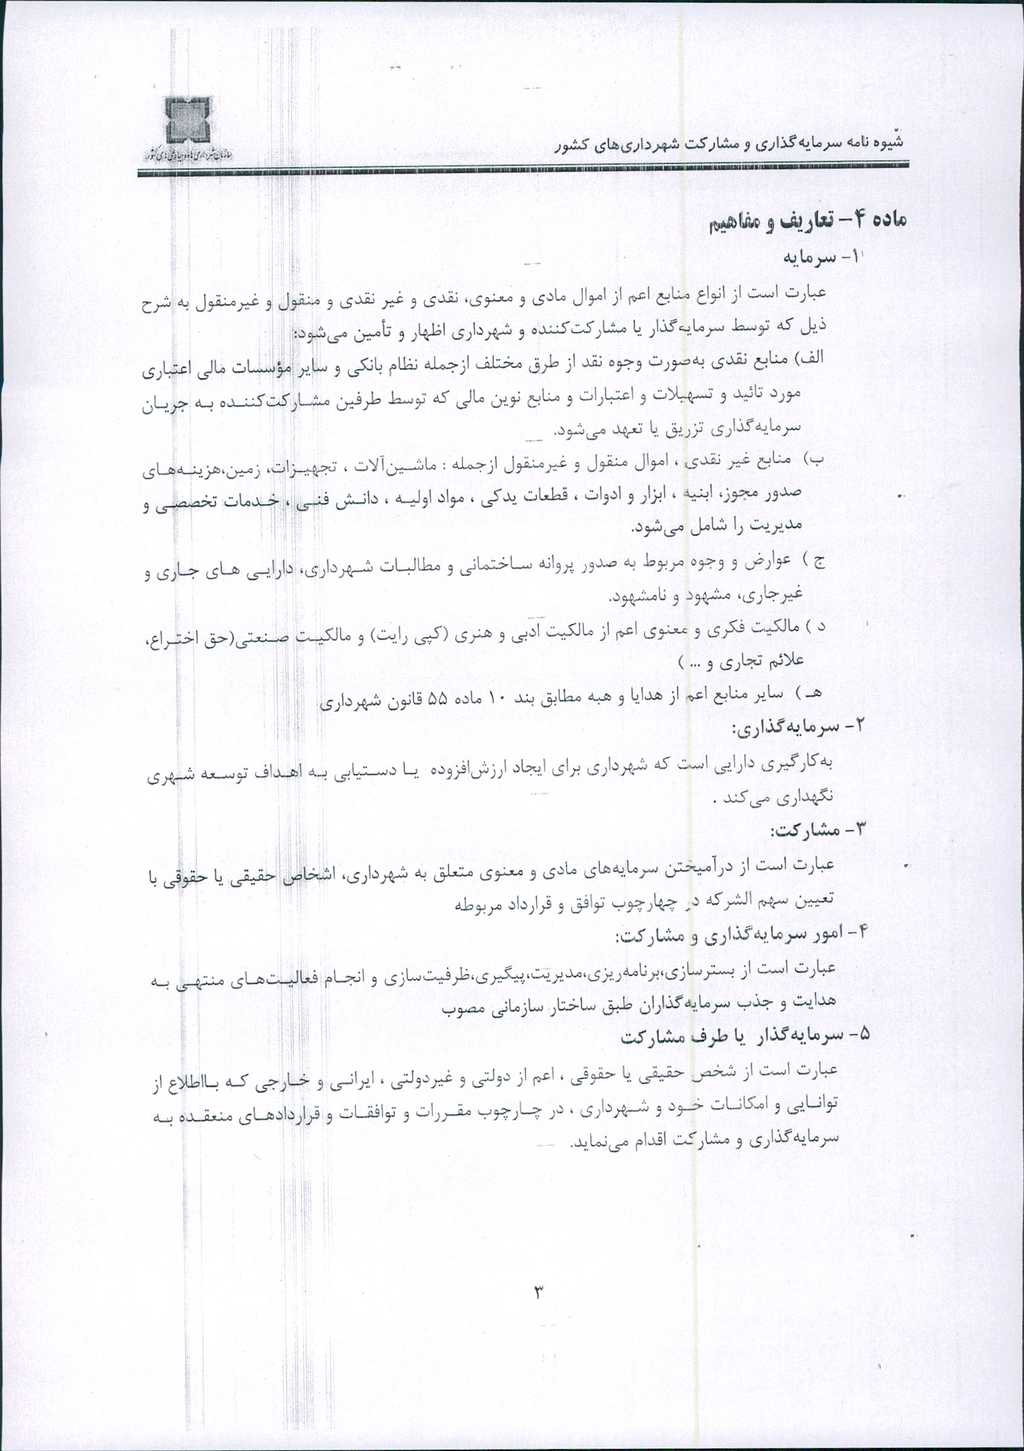 شیوه نامه سرمایه‌گذاری و مشارکت شهرداری‌های کشور
سازمان شهرداری‌ها و دهیاری‌های کشور
ماده ۴- تعاریف و مفاهیم
۱- سرمایه
عبارت است از انواع منابع اعم از اموال مادی و معنوی، نقدی و غیر نقدی و منقول و غیرمنقول به شرح
ذیل که توسط سرمایه‌گذار یا مشارکت‌کننده و شهرداری اظهار و تأمین می‌شود:
الف) منابع نقدی به‌صورت وجوه نقد از طرق مختلف ازجمله نظام بانکی و سایر مؤسسات مالی اعتباری
مورد تائید و تسهیلات و اعتبارات و منابع نوین مالی که توسط طرفین مشارکت‌کننده به جریان
سرمایه‌گذاری تزریق یا تعهد می‌شود.
ب) منابع غیر نقدی ، اموال منقول و غیرمنقول ازجمله : ماشین‌آلات ، تجهیزات، زمین،هزینه‌های
صدور مجوز، ابنیه ، ابزار و ادوات ، قطعات یدکی ، مواد اولیه ، دانش فنی ، خدمات تخصصی و
مدیریت را شامل می‌شود.
ج ) عوارض و وجوه مربوط به صدور پروانه ساختمانی و مطالبات شهرداری، دارایی های جاری و
غیرجاری، مشهود و نامشهود.
د ) مالکیت فکری و معنوی اعم از مالکیت ادبی و هنری (کپی رایت) و مالکیت صنعتی(حق اختراع،
علائم تجاری و ... )
هـ ) سایر منابع اعم از هدایا و هبه مطابق بند ۱۰ ماده ۵۵ قانون شهرداری
۲- سرمایه‌گذاری:
به‌کارگیری دارایی است که شهرداری برای ایجاد ارزش‌افزوده یا دستیابی به اهداف توسعه شهری
نگهداری می‌کند .
۳- مشارکت:
عبارت است از درآمیختن سرمایه‌های مادی و معنوی متعلق به شهرداری، اشخاص حقیقی یا حقوقی با
تعیین سهم الشرکه در چهارچوب توافق و قرارداد مربوطه
۴- امور سرمایه‌گذاری و مشارکت:
عبارت است از بسترسازی،برنامه‌ریزی،مدیریت،پیگیری،ظرفیت‌سازی و انجام فعالیت‌های منتهی به
هدایت و جذب سرمایه‌گذاران طبق ساختار سازمانی مصوب
۵- سرمایه‌گذار یا طرف مشارکت
عبارت است از شخص حقیقی یا حقوقی ، اعم از دولتی و غیردولتی ، ایرانی و خارجی که بااطلاع از
توانایی و امکانات خود و شهرداری ، در چارچوب مقررات و توافقات و قراردادهای منعقده به
سرمایه‌گذاری و مشارکت اقدام می‌نماید.
۳